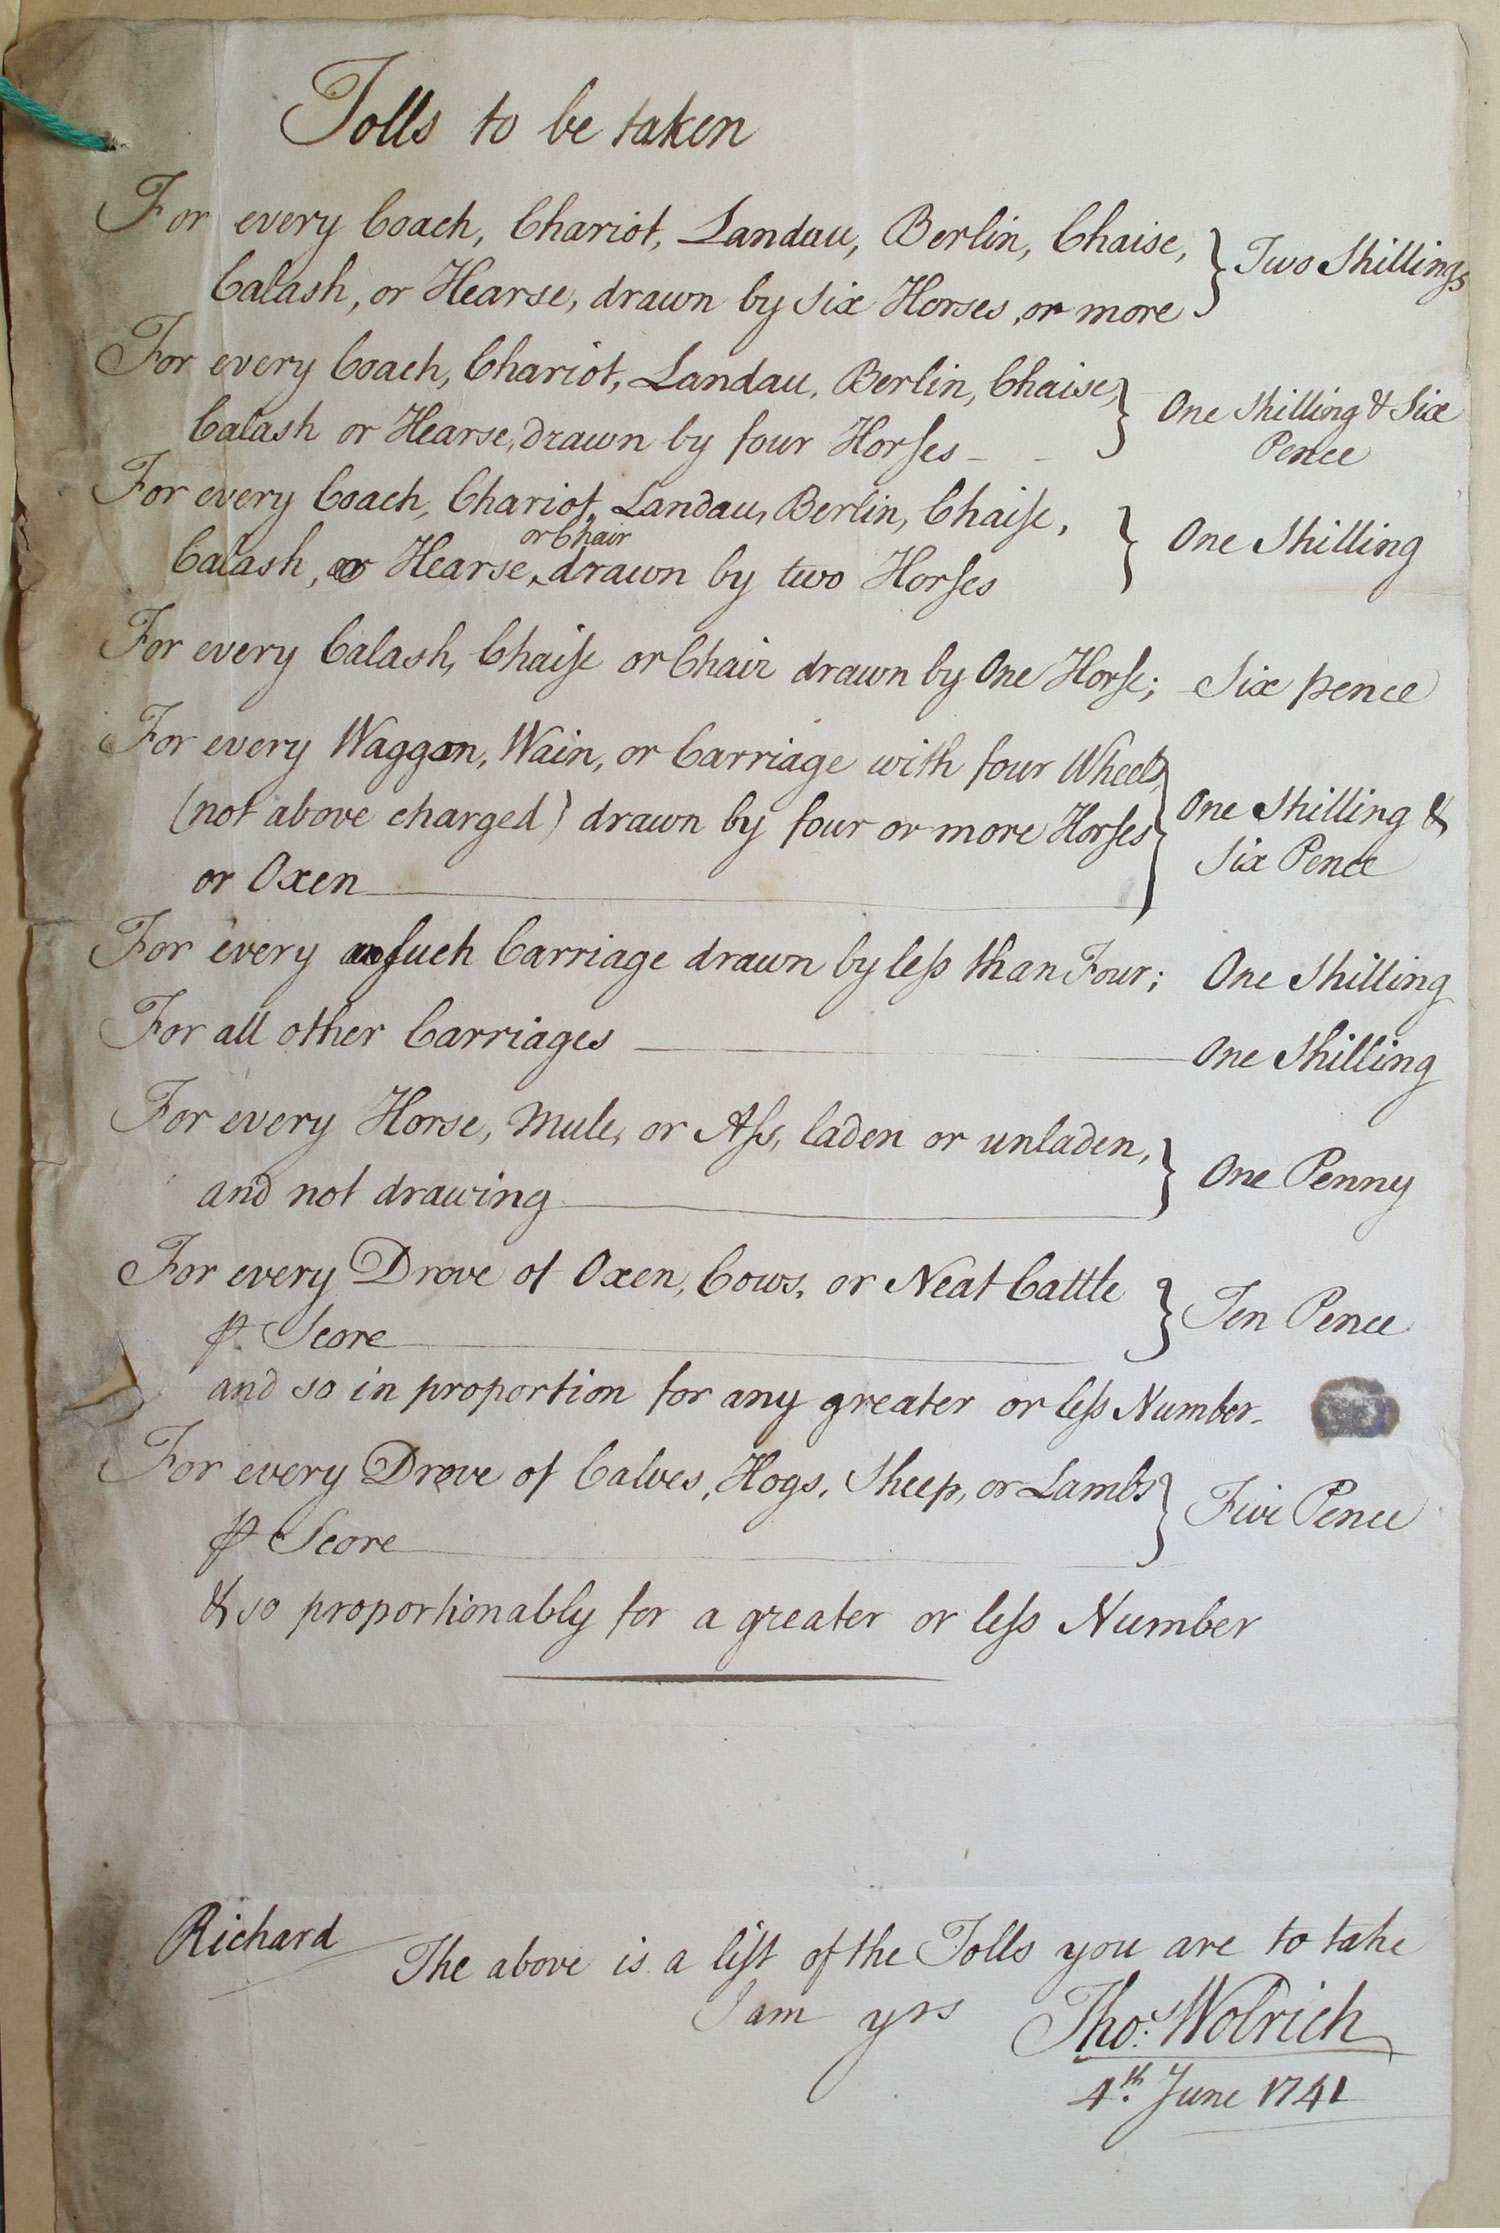 Tolls to be taken
For every Coach, Chariot, Landau, Berlin, Chaise, } Two Shillings
Calash, or Hearse, drawn by Six Horses, or more
For every Coach, Chariot, Landau, Berlin, Chaise, } One Shilling & Six
Calash or Hearse, drawn by four Horſes - - Pence
For every Coach, Chariot, Landau, Berlin, Chaiſe, } One Shilling
or Chair
Calash, or Hearse, drawn by two Horſes
For every Calash, Chaiſe or Chair drawn by One Horſe; Six pence
For every Waggon, Wain, or Carriage with four Wheels,
(not above charged) drawn by four or more Horſes } One Shilling &
or Oxen Six Pence
For every ſuch Carriage drawn by leſs than Four; One Shilling
For all other Carriages One Shilling
For every Horse, Mule, or Aſs, laden or unladen, } One Penny
and not drawing
For every Drove of Oxen, Cows, or Neat Cattle } Ten Pence
⅌ Score
and so in proportion for any greater or leſs Number.
For every Drove of Calves, Hogs, Sheep, or Lambs } Five Pence
⅌ Score
& so proportionably for a greater or leſs Number
Richard
The above is a liſt of the Tolls you are to take
I am yrs Thos: Wolrich
4th. June 1741